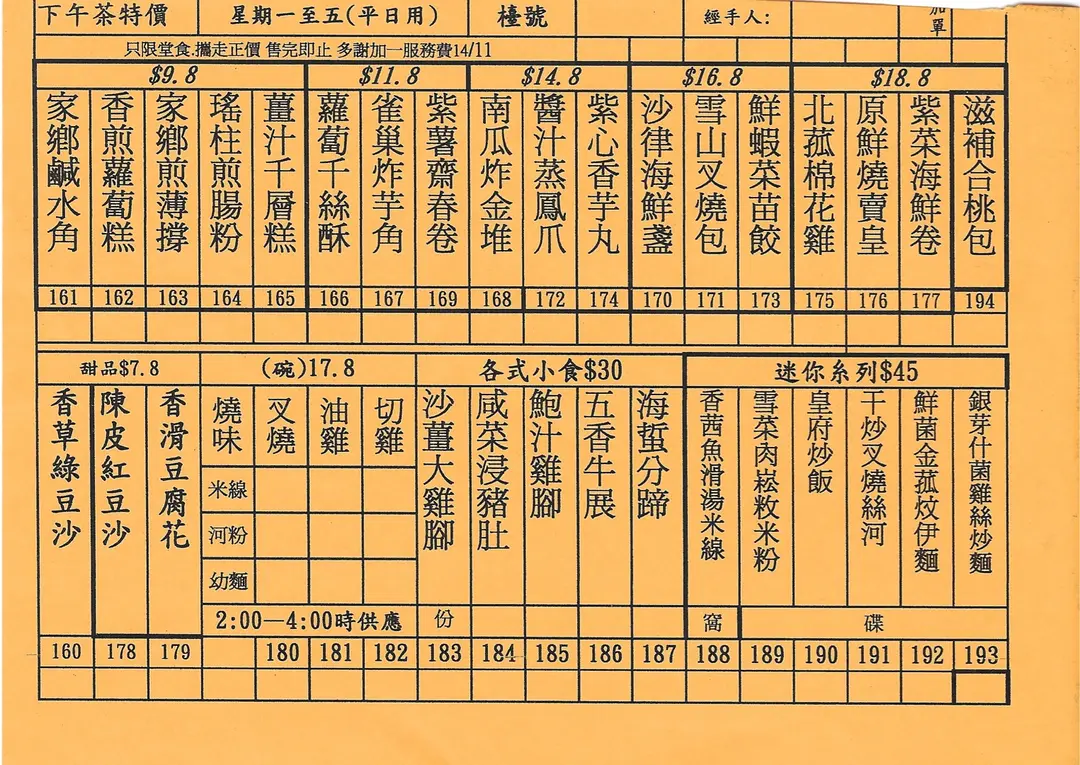 下午茶特價 星期一至五(平日用) 檯號 經手人: 加單
只限堂食.攜走正價 售完即止 多謝加一服務費14/11
$9.8 $11.8 $14.8 $16.8 $18.8
家鄉鹹水角 161
香煎蘿蔔糕 162
家鄉煎薄撐 163
瑤柱煎腸粉 164
薑汁千層糕 165
蘿蔔千絲酥 166
雀巢炸芋角 167
紫薯齋春卷 169
南瓜炸金堆 168
醬汁蒸鳳爪 172
紫心香芋丸 174
沙律海鮮盞 170
雪山叉燒包 171
鮮蝦菜苗餃 173
北菰棉花雞 175
原鮮燒賣皇 176
紫菜海鮮卷 177
滋補合桃包 194
甜品$7.8 (碗)17.8 各式小食$30 迷你系列$45
香草綠豆沙 160
陳皮紅豆沙 178
香滑豆腐花 179
燒味
米線
河粉
幼麵
叉燒 180
油雞 181
切雞 182
2:00—4:00時供應
沙薑大雞腳 份 183
咸菜浸豬肚 184
鮑汁雞腳 185
五香牛展 186
海蜇分蹄 187
香茜魚滑湯米線 窩 188
雪菜肉崧炆米粉 189
皇府炒飯 190
干炒叉燒絲河 191
鮮菌金菰炆伊麵 192
銀芽什菌雞絲炒麵 193
碟